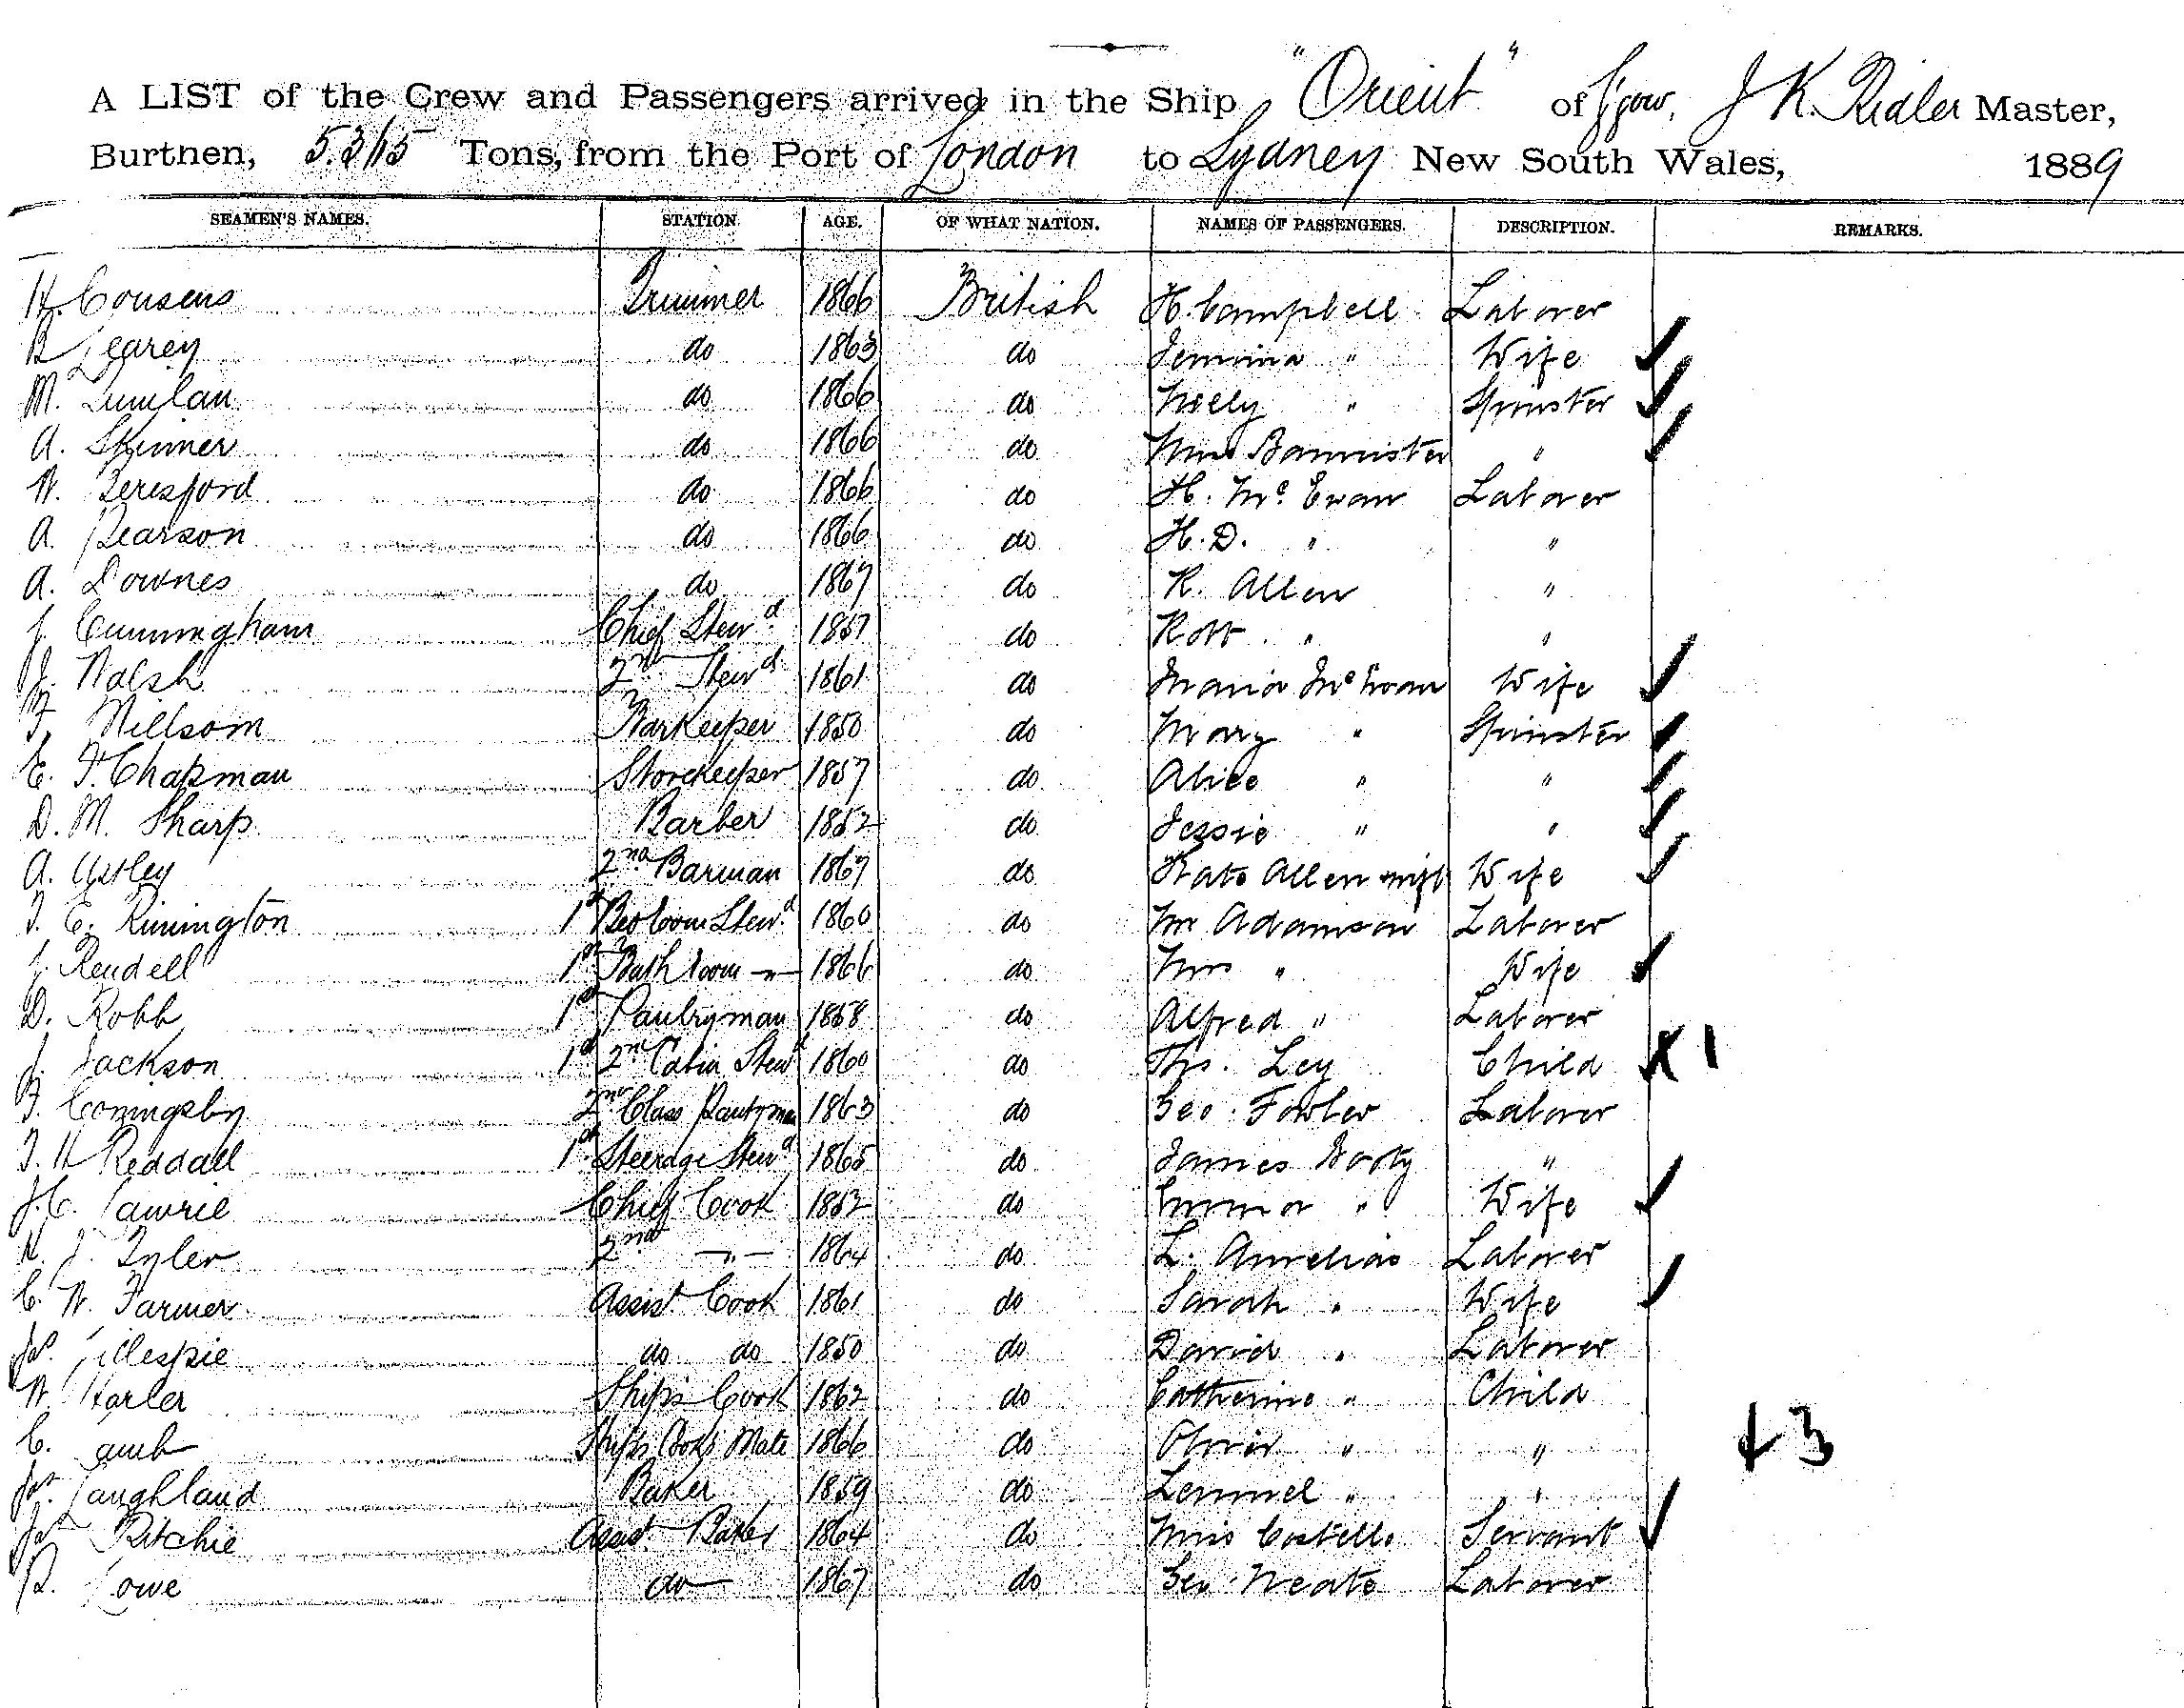 A LIST of the Crew and Passengers arrived in the Ship "Orient" of Gow. J K. Ridler Master,
Burthen, 5.365 Tons, from the Port of London to Sydney New South Wales, 1889
SEAMEN'S NAMES. STATION. AGE. OF WHAT NATION. NAMES OF PASSENGERS. DESCRIPTION. REMARKS.
H. Cousens Trimmer 1866 British H. Campbell Laborer
B Gearey do 1863 do Jemima " Wife
M. do 1866 do Nelly " Spinster
A. Skinner do 1866 do Bannister "
W. Beresford do 1866 do H. Mc Ewan Laborer
A. Pearson do 1866 do H. D. " "
A. Downes do 1867 do R. Allen "
J. Cunningham Chief Stewd 1857 do Robt " "
J. Walsh 2nd Stewd 1861 do Maria Mc Ewan Wife
F. Millsom Barkeeper 1850 do Mary " Spinster
E. F. Chapman Storekeeper 1857 do Alice " "
D. M. Sharp Barber 1852 do Jessie " "
A. Astley 2nd Barman 1867 do Kate Allen Wife
T. E. Rimington 1st Bedroom Stewd 1860 do Mr Adamson Laborer
J. Rendell 1st Bathroom -"- 1866 do Mrs " Wife
D. Robb 1st Pantryman 1858 do Alfred " Laborer
J. Jackson 1st 2nd Cabin Stewd 1860 do Thos. Ley Child X 1
F. Coningsby 2nd Class Pantryman 1863 do Geo. Fowler Laborer
T. H Reddall 1st Steerage Stewd 1865 do James Booty "
J. C. Lawrie Chief Cook 1852 do Emma " Wife
H. J. Tyler 2nd -"- 1864 do L. Aurelias Laborer
C. W. Farmer Assist Cook 1861 do Sarah " Wife
Js. Gillespie do do 1850 do David " Laborer
W. Harler Ship's Cook 1862 do Catherine " Child
C. Lamb Ships Cooks Mate 1866 do Olivia " " 3
Js. Laughland Baker 1859 do Lemmel " "
Js. Ritchie Assist. Baker 1864 do Miss Costello Servant
R. Lowe do 1867 do Geo. Neate Laborer